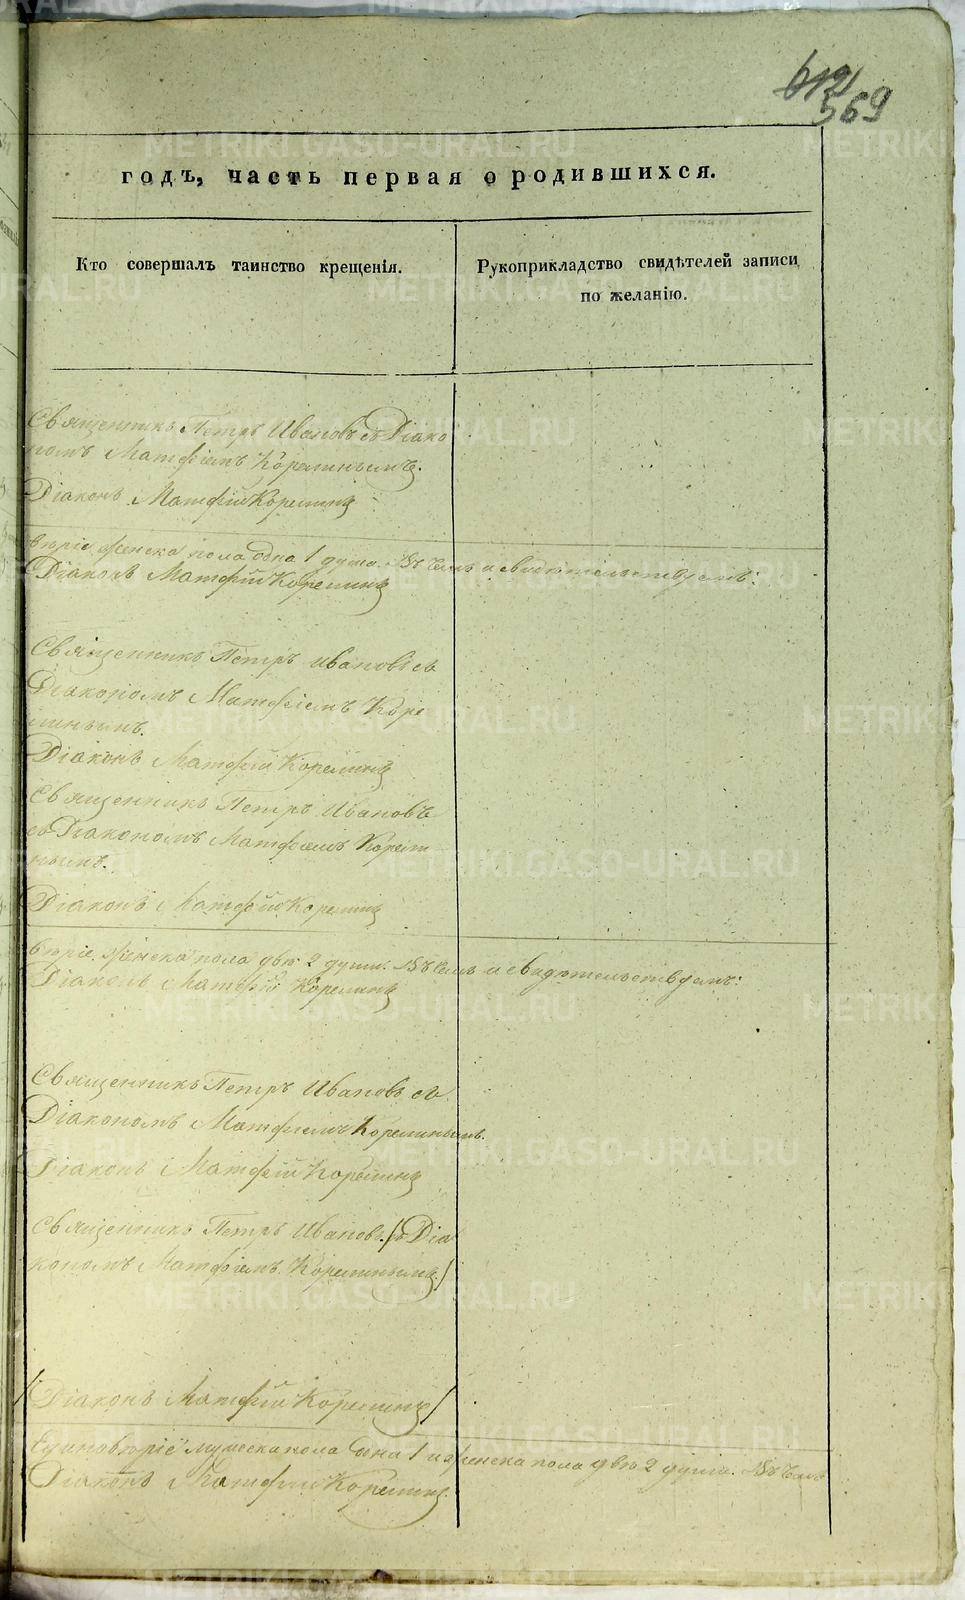 612
569
годъ, часть первая о родившихся.
Кто совершалъ таинство крещенія.
Рукоприкладство свидѣтелей записи
по желанію.
Священникъ Петръ Ивановъ съ Діако
номъ Матфіемъ Корелинымъ.
Діаконъ Матфій Корелинъ
вѣріе женска пола одна 1 душа. Въ чемъ и свидѣтельствуемъ:
Діаконъ Матфій Корелинъ
Священникъ Петръ Ивановъ съ
Діакономъ Матфіемъ Коре
линымъ.
Діаконъ Матфій Корелинъ
Священникъ Петръ Ивановъ
съ Діакономъ Матфіемъ Корели
нымъ.
Діаконъ Матфій Корелинъ
вѣріе женска пола двѣ 2 души. Въ чемъ и свидѣтельствуемъ:
Діаконъ Матфій Корелинъ
Священникъ Петръ Ивановъ съ
Діакономъ Матфіемъ Корелинымъ.
Діаконъ Матфій Корелинъ
Священникъ Петръ Ивановъ /съ Діа
кономъ Матфіемъ Корелинымъ/
/Діаконъ Матфій Корелинъ/
Единовѣріе мужеска пола одна 1 и женска пола двѣ 2 души. Въ чемъ
Діаконъ Матфій Корелинъ.
METRIKI.GASO-URAL.RU